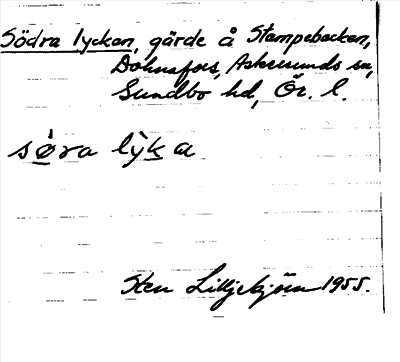 Södra lyckan, gärde å Stampebacken,
Dohnafors, Askersunds sn,
Sundbo hd, Ör. l.
sø̀ra lỳka
Sten Lilljebjörn 1955.